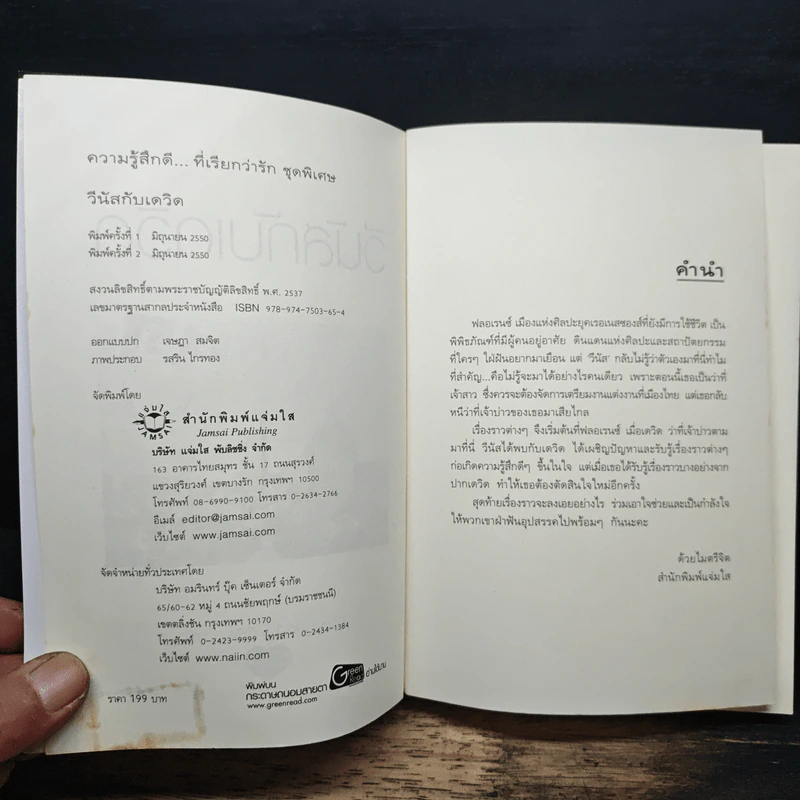 ความรู้สึกดี... ที่เรียกว่ารัก ชุดพิเศษ
วีนัสกับเดวิด
พิมพ์ครั้งที่ 1 มิถุนายน 2550
พิมพ์ครั้งที่ 2 มิถุนายน 2550
สงวนลิขสิทธิ์ตามพระราชบัญญัติลิขสิทธิ์ พ.ศ. 2537
เลขมาตรฐานสากลประจำหนังสือ ISBN 978-974-7503-65-4
ออกแบบปก เจษฎา สมจิต
ภาพประกอบ รสริน ไกรทอง
จัดพิมพ์โดย
แจ่มใส
JAMSAI
สำนักพิมพ์แจ่มใส
Jamsai Publishing
บริษัท แจ่มใส พับลิชชิ่ง จำกัด
163 อาคารไทยสมุทร ชั้น 17 ถนนสุรวงศ์
แขวงสุริยวงศ์ เขตบางรัก กรุงเทพฯ 10500
โทรศัพท์ 08-6990-9100 โทรสาร 0-2634-2766
อีเมล์ editor@jamsai.com
เว็บไซต์ www.jamsai.com
จัดจำหน่ายทั่วประเทศโดย
บริษัท อมรินทร์ บุ๊ค เซ็นเตอร์ จำกัด
65/60-62 หมู่ 4 ถนนชัยพฤกษ์ (บรมราชชนนี)
เขตตลิ่งชัน กรุงเทพฯ 10170
โทรศัพท์ 0-2423-9999 โทรสาร 0-2434-1384
เว็บไซต์ www.naiin.com
พิมพ์บน
กระดาษถนอมสายตา
www.greenread.com
Green Read
อ่านได้นาน
ราคา 199 บาท
คำนำ
ฟลอเรนซ์ เมืองแห่งศิลปะยุคเรอเนสซองส์ที่ยังมีการใช้ชีวิต เป็น
พิพิธภัณฑ์ที่มีผู้คนอยู่อาศัย ดินแดนแห่งศิลปะและสถาปัตยกรรม
ที่ใครๆ ใฝ่ฝันอยากมาเยือน แต่ 'วีนัส' กลับไม่รู้ว่าตัวเองมาที่นี่ทำไม
ที่สำคัญ...คือไม่รู้จะมาได้อย่างไรคนเดียว เพราะตอนนี้เธอเป็นว่าที่
เจ้าสาว ซึ่งควรจะต้องจัดการเตรียมงานแต่งงานที่เมืองไทย แต่เธอกลับ
หนีว่าที่เจ้าบ่าวของเธอมาเสียไกล
เรื่องราวต่างๆ จึงเริ่มต้นที่ฟลอเรนซ์ เมื่อเดวิด ว่าที่เจ้าบ่าวตาม
มาที่นี่ วีนัสได้พบกับเดวิด ได้เผชิญปัญหาและรับรู้เรื่องราวต่างๆ
ก่อเกิดความรู้สึกดีๆ ขึ้นในใจ แต่เมื่อเธอได้รับรู้เรื่องราวบางอย่างจาก
ปากเดวิด ทำให้เธอต้องตัดสินใจใหม่อีกครั้ง
สุดท้ายเรื่องราวจะลงเอยอย่างไร ร่วมเอาใจช่วยและเป็นกำลังใจ
ให้พวกเขาฝ่าฟันอุปสรรคไปพร้อมๆ กันนะคะ
ด้วยไมตรีจิต
สำนักพิมพ์แจ่มใส